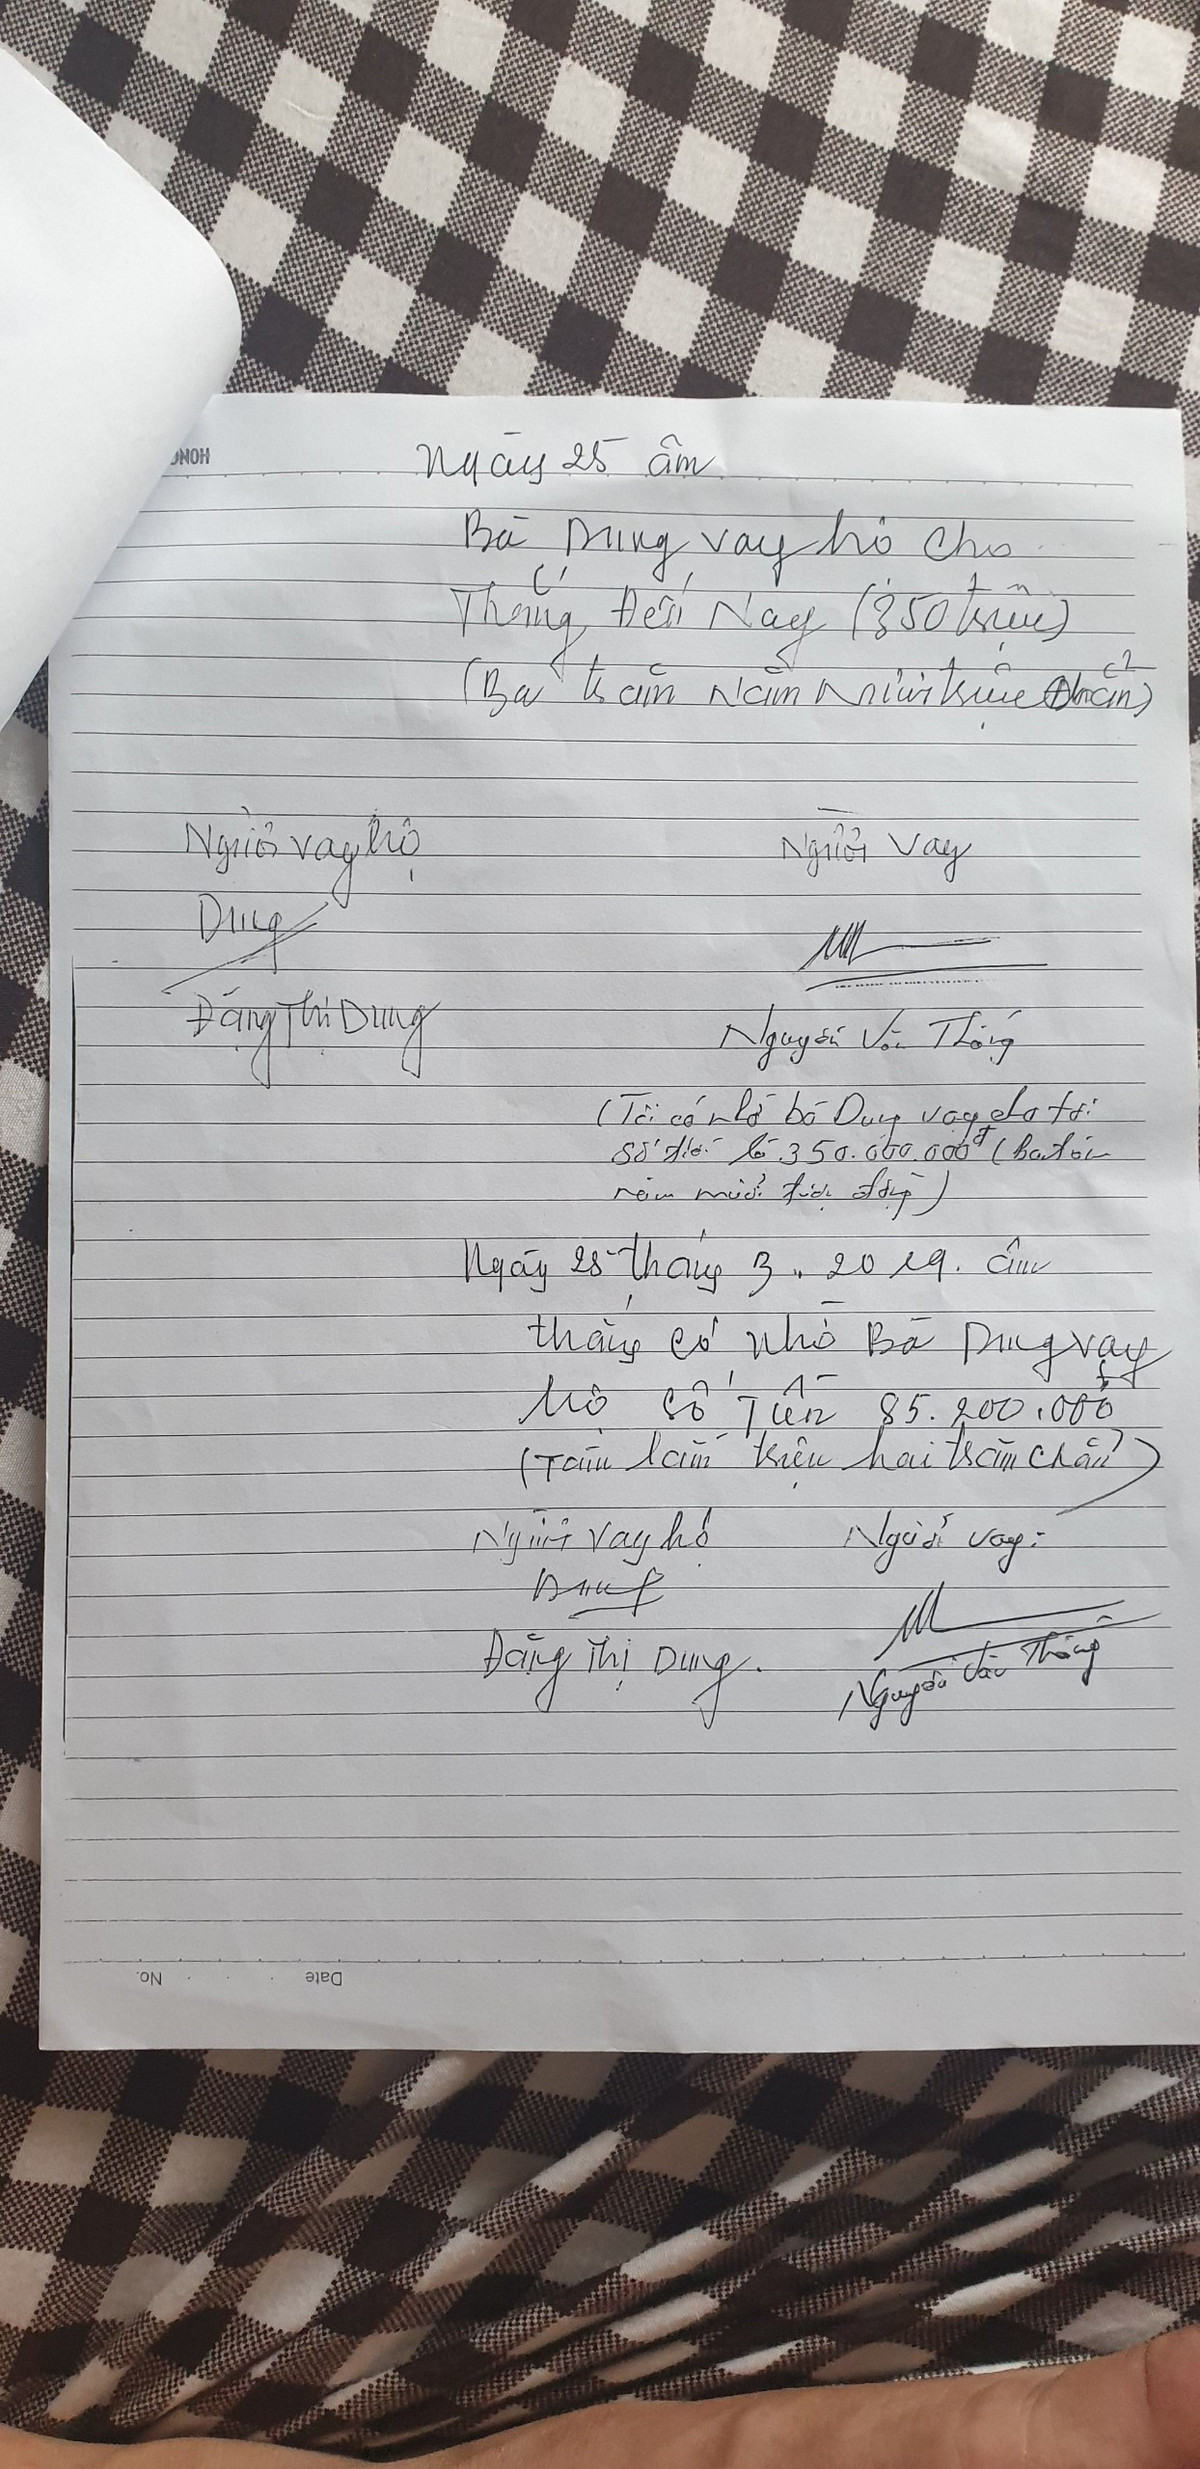 HONG
Ngày 25 âm
Bà Dung vay hộ cho
Thắng đến Nay (350 triệu)
(Ba trăm năm mươi triệu chẵn)
Người vay hộ
Người vay
Dung
Đặng Thị Dung
Nguyễn Văn Thắng
(Tôi có nhờ bà Dung vay cho tôi
số tiền là 350.000.000đ (ba trăm
năm mươi triệu đồng)
Ngày 25 tháng 3. 2019. âm
thắng có nhờ Bà Dung vay
hộ số Tiền 85.200.000đ
(Tám lăm triệu hai trăm chẵn)
Người vay hộ
Người vay:
Dung
Đặng Thị Dung.
Nguyễn Văn Thắng
No. Date